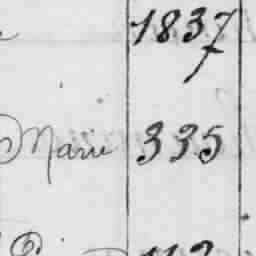 1837
Marie 335